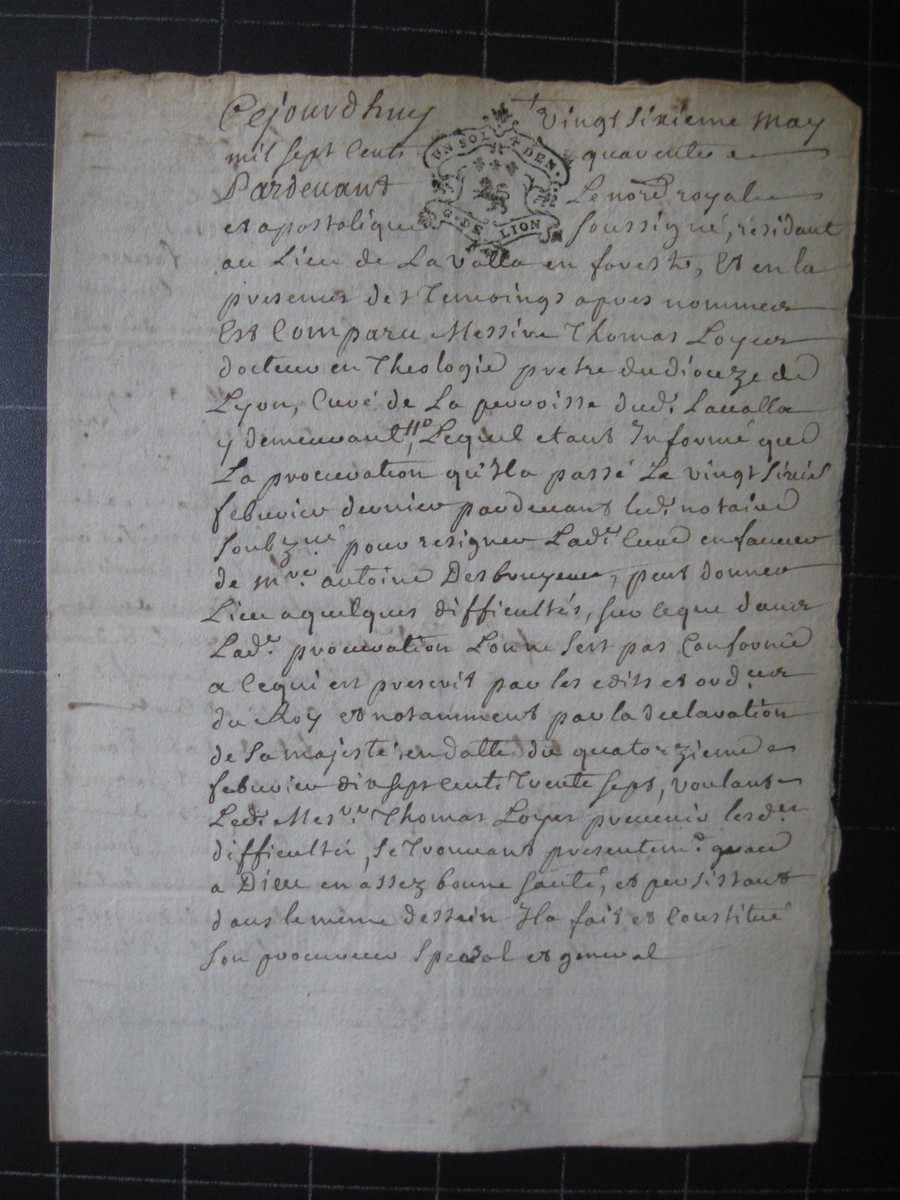 Cejourdhuy vingt sixieme may
mil sept Cents quarente
UN SOL 4 DEN.
G. DE LION
Pardevant Le nore royal
et apostolique soussigné, résidant
au Lieu de Lavalla en forests, Et en la
presence des Temoings apres nommez
Est Comparu Messire Thomas Loyer
docteur en Theologie prêtre du dioceze de
Lyon, Curé de La parroisse dud. Lavalla
y demeurant, Lequel etant Informé que
La procuration qu'Il a passé Le vingt sixie
febvrier dernier pardevant led. notaire
soubzne pour resigner Lad. Cure en faveur
de mre antoine Desbruyeres, peut donner
Lieu a quelques difficultés, sur ce que dans
Lad. procuration L'on ne s'est pas Conformé
a Cequi est prescrit par les edits et ord.ces
du Roy et notamment par la declaration
de sa majesté, en datte du quatorzieme
febvrier dix sept Cents Trente sept, voulant
Led. Mesre Thomas Loyer prevenir lesd.
difficultés, se Trouvant presentemt. grace
a Dieu en assez bonne santé, et persistant
dans le meme dessein Il a fait et Constitué
son procureur special et general